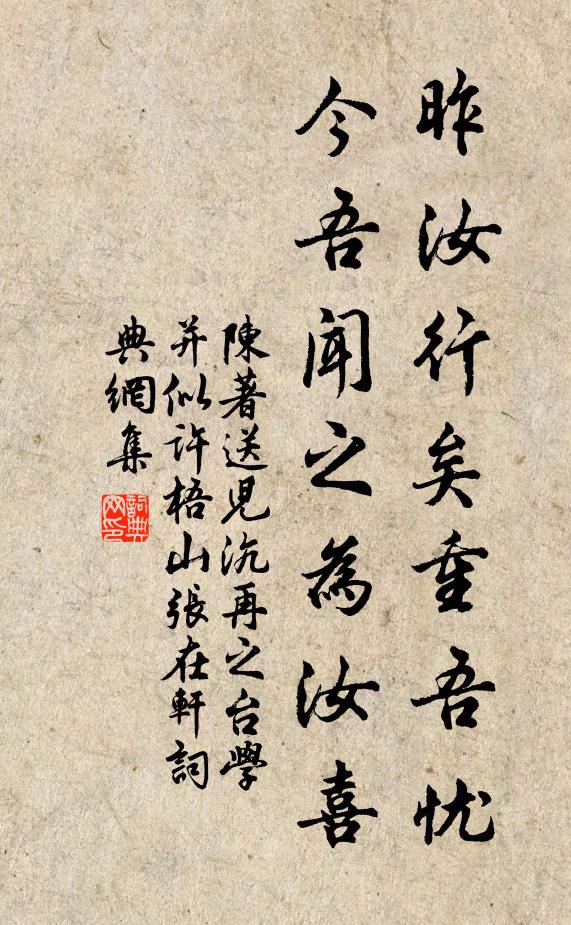 昨汝行矣重吾忧
今吾聞之為汝喜
陳著送児沆再之台學
并似許梧山張在軒詞
典網集
詞典
网印